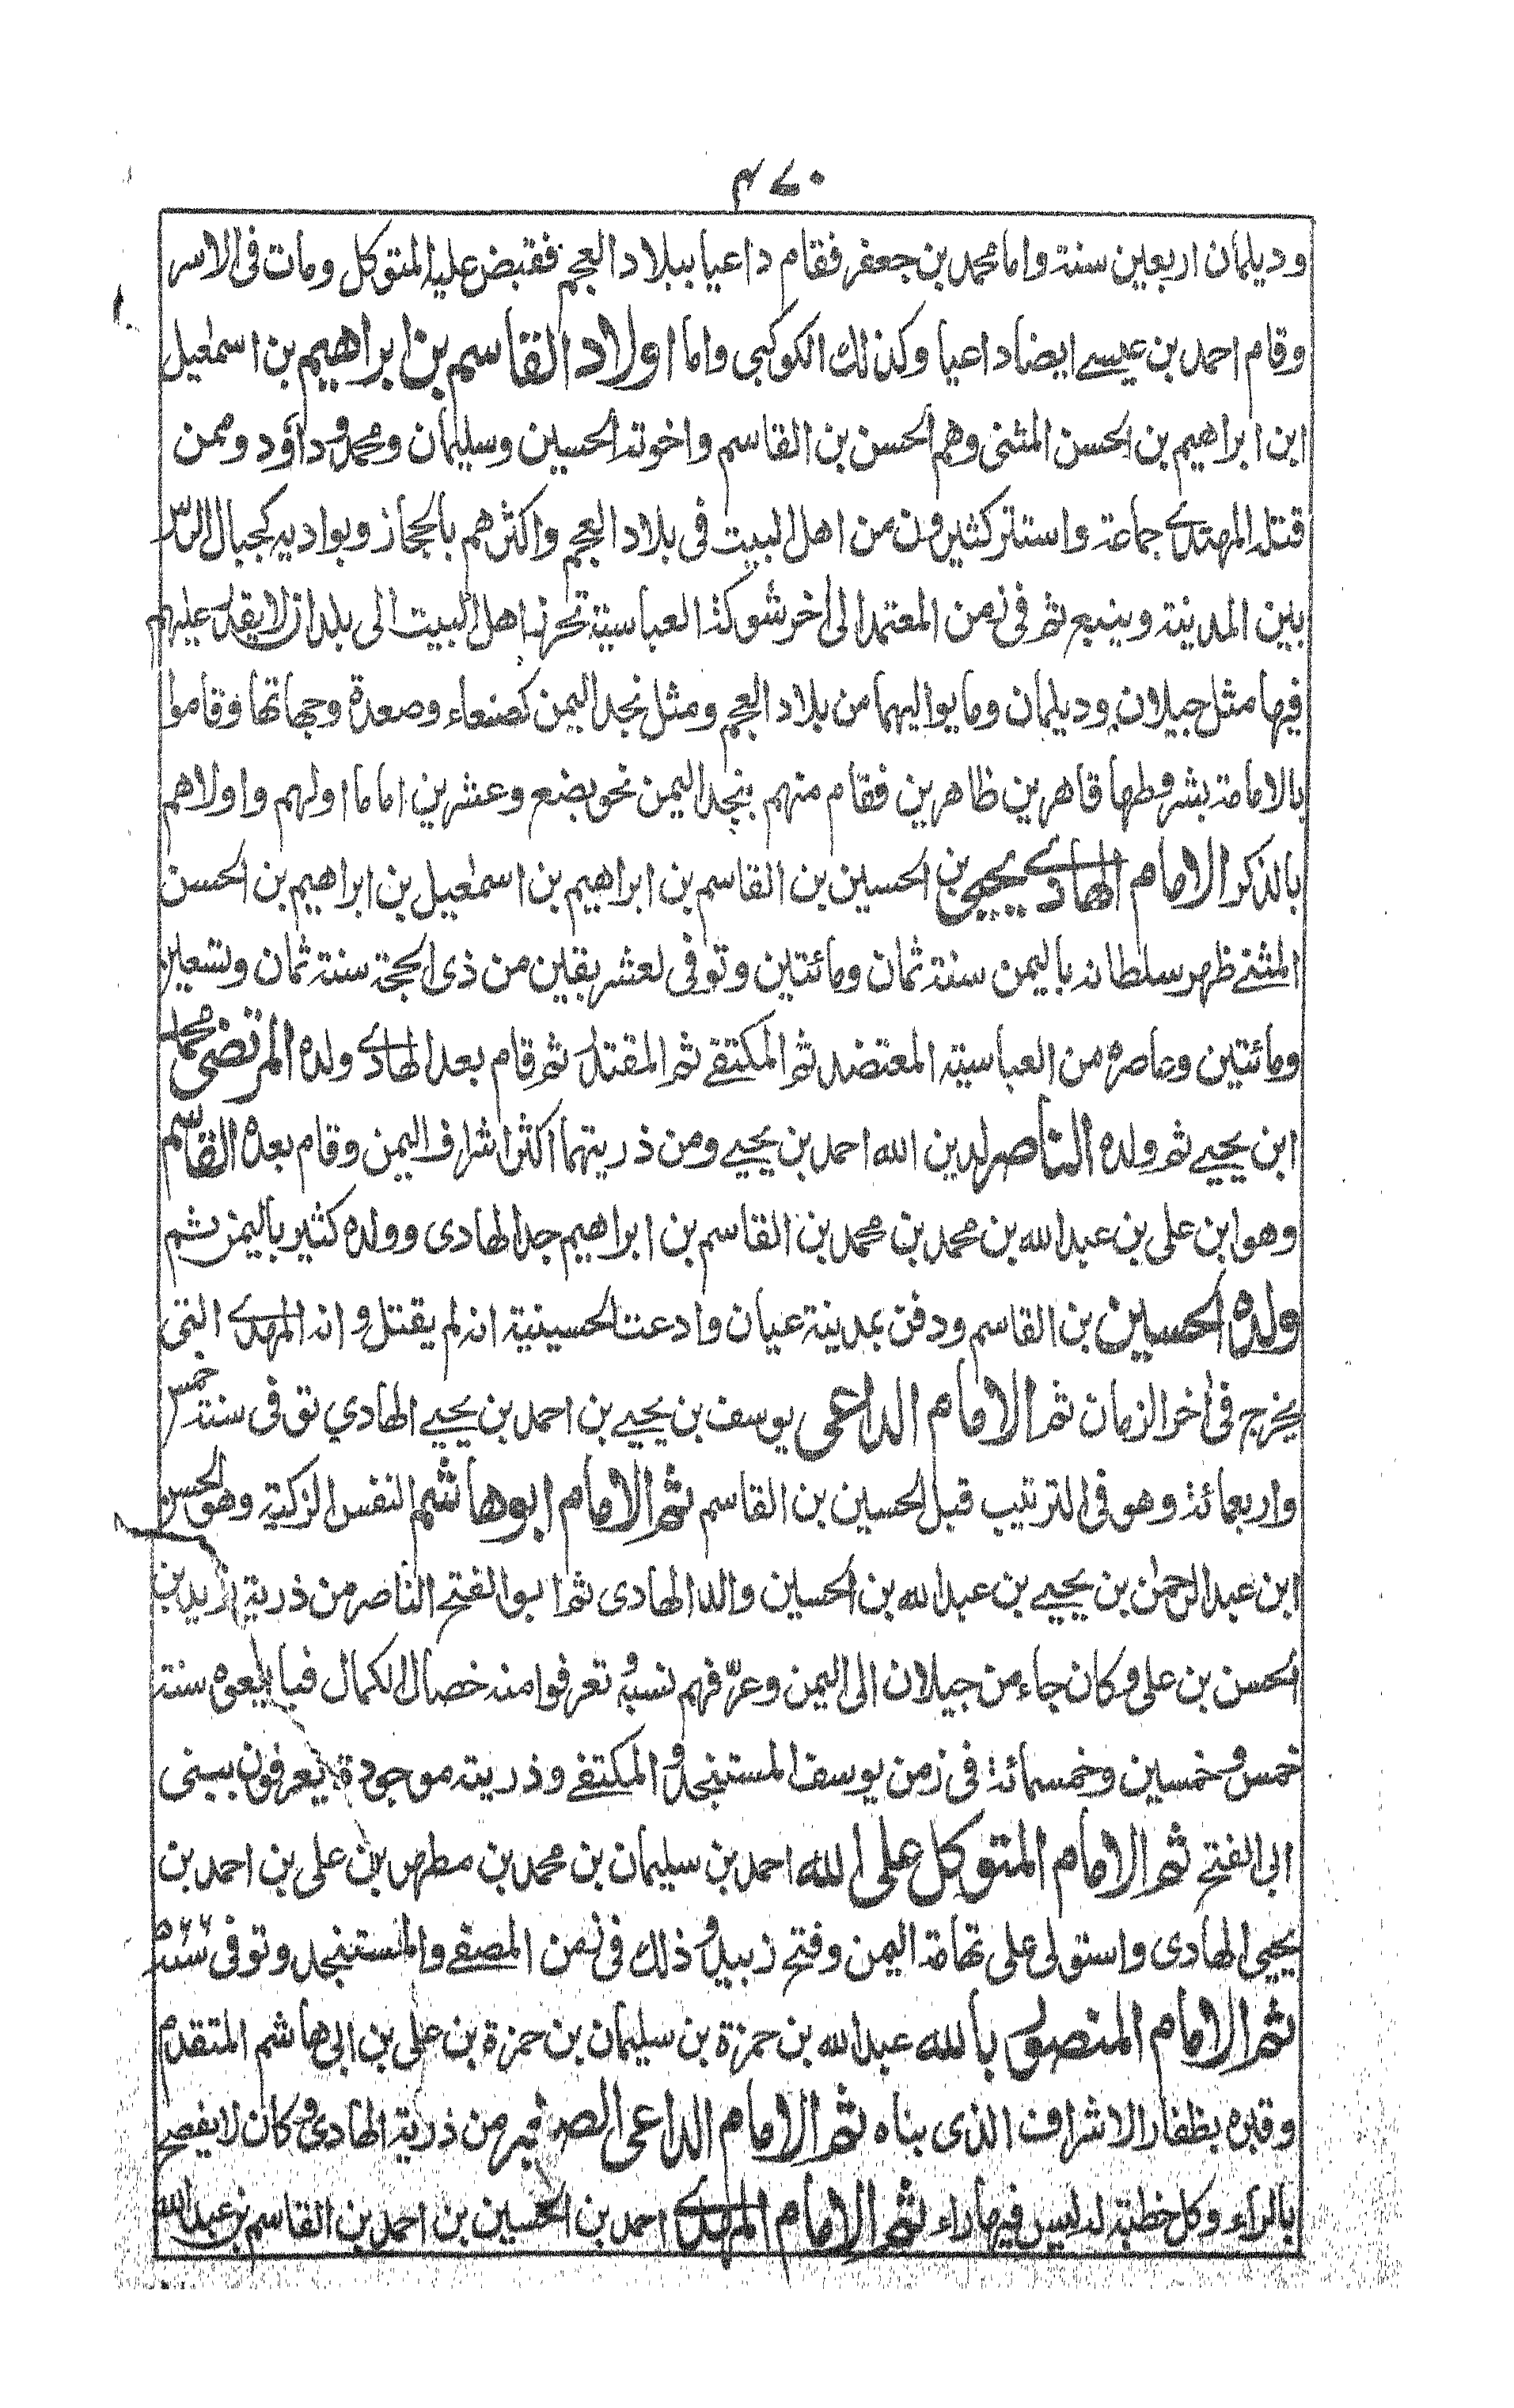 ٤٧٠
وديلمان اربعين سنة واما محمد بن جعفر فقام داعيا ببلاد العجم فقبض عليه المتوكل ومات فى الاسر
وقام احمد بن عيسے ايضا داعيا وكذلك الكوكبى واما اولاد القاسم بن ابراهيم بن اسمٰعيل
ابن ابراهيم بن الحسن المثنى وهم الحسن بن القاسم واخوته الحسين وسليمان ومحمد وداؤد وممن
قتله المهتدے جماعة واستتر كثيرون من اهل البيت فى بلاد العجم واكثرهم بالحجاز وبواديه كجبال الرس
بين المدينة وينبع ثم فى زمن المعتمد الى اٰخر شوكة العباسية تحرز اهل البيت الى بلدان لا يقدر عليهم
فيها مثل جيلان وديلمان وما يواليهما من بلاد العجم ومثل نجد اليمن كصنعاء وصعدة وجهاتها وقاموا
بالامامة بشروطها قاهرين ظاهرين فقام منهم بنجد اليمن نحو بضع وعشرين اماما اولهم واولاهم
بالذكر الامام الهادے يحيى بن الحسين بن القاسم بن ابراهيم بن اسمٰعيل بن ابراهيم بن الحسن
المثنے ظهر سلطانه باليمن سنة ثمان ومائتين وتوفى لعشر بقين من ذى الحجة سنة ثمان وتسعين
ومائتين وعاصره من العباسية المعتضد ثم المكتفے ثم المقتدر ثم قام بعد الهادے ولده المرتضى محمد
ابن يحيے ثم ولده الناصر لدين الله احمد بن يحيے ومن ذريتهما اكثر اشراف اليمن وقام بعده القاسم
وهو ابن على بن عبد الله بن محمد بن محمد بن القاسم بن ابراهيم جد الهادى وولده كثير باليمن ثم
ولده الحسين بن القاسم ودفن بمدينة عيان وادعت الحسينية انه لم يقتل وانه المهدے التى
يخرج فى اٰخر الزمان ثم الامام الداعى يوسف بن يحيے بن احمد بن يحيے الهادي توفى سنة خمس
واربعمائة وهو فى الترتيب قبل الحسين بن القاسم ثم الامام ابو هاشم النفس الزكية وهو الحسن
ابن عبد الرحمٰن بن يحيے بن عبد الله بن الحسين والد الهادى ثم ابو الفتح الناصر من ذرية زيد بن
الحسن بن على وكان جاء من جيلان الى اليمن وعرّفهم نسبه وتعرفوا منه خصال الكمال فبايعوه سنة
خمس وخمسين وخمسمائة فى زمن يوسف المستنجد والمكتفے وذريته موجودة يعرفون ببنى
ابى الفتح ثم الامام المتوكل على الله احمد بن سليمان بن محمد بن مطهر بن على بن احمد بن
يحيى الهادى واستولى على تهامة اليمن وفتح زبيد وذلك فى زمن المصفے والمستنجد وتوفى سنة ٥٦٦
ثم الامام المنصور بالله عبد الله بن حمزة بن سليمان بن حمزة بن على بن ابى هاشم المتقدم
وقبره بظفار الاشراف الذى بناه ثم الامام الداعى الصغير من ذرية الهادى وكان لا يفصح
بالراء وكل خطبة له ليس فيها راء ثم الامام المهدے احمد بن الحسين بن احمد بن القاسم بن عبد الله